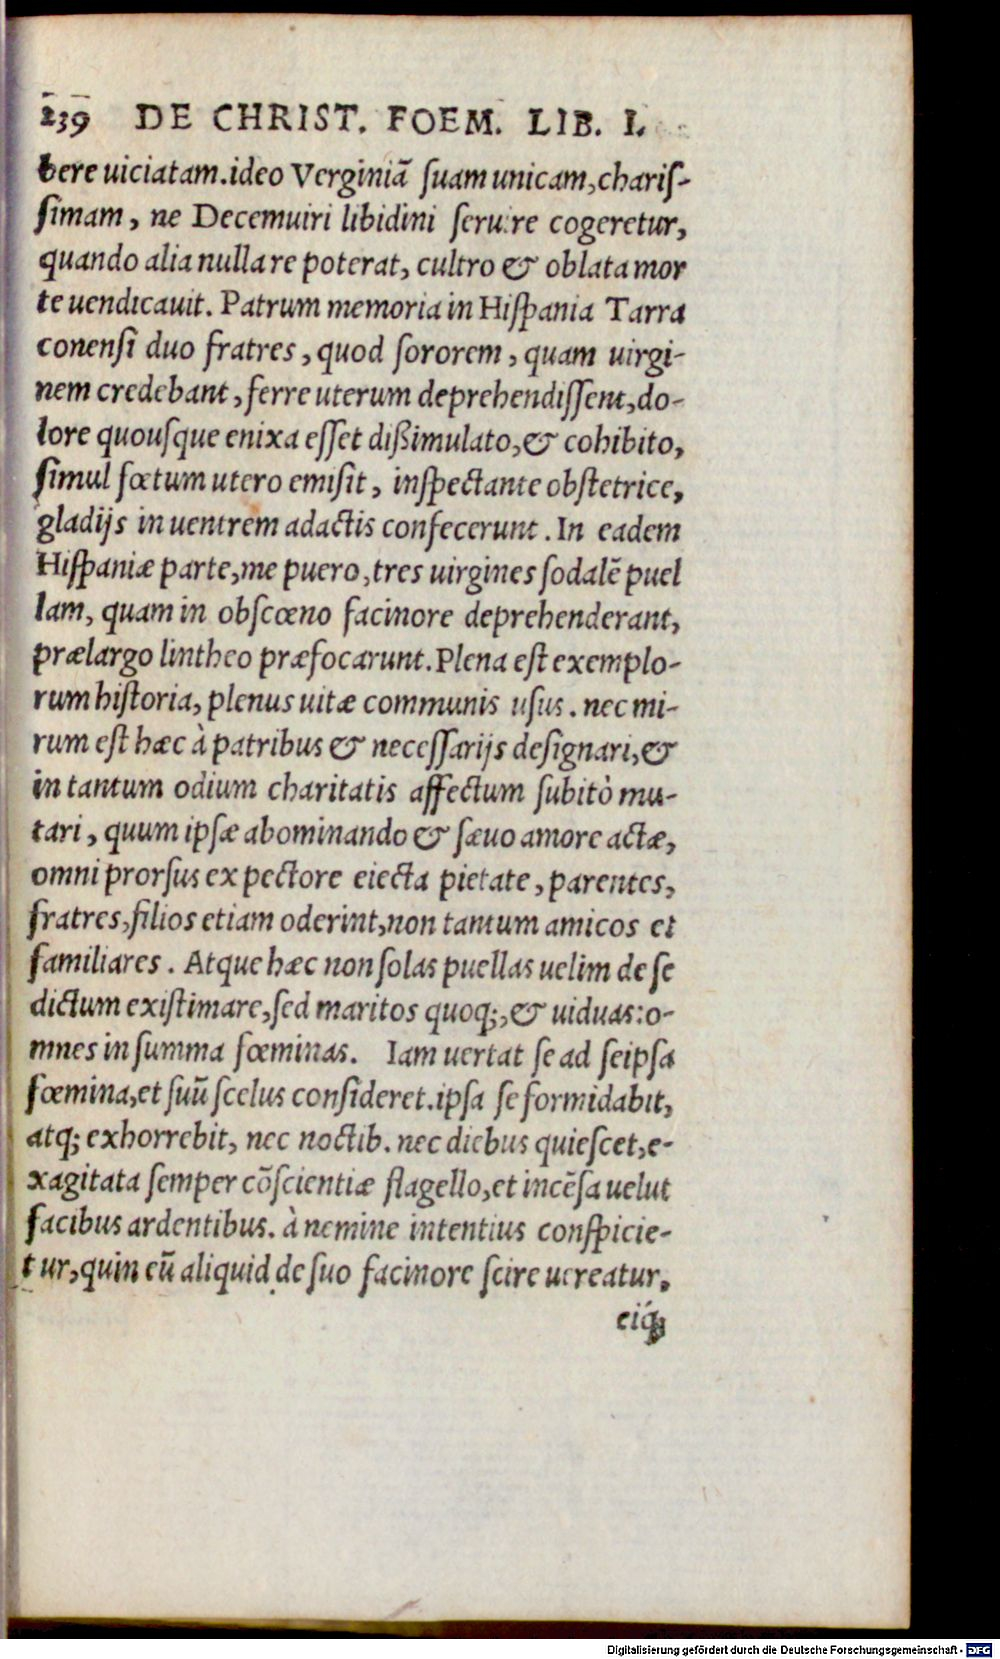 239 DE CHRIST. FOEM. LIB. I.
bere uiciatam.ideo Verginiā ſuam unicam,chariſ-
ſimam, ne Decemuiri libidini ſeruire cogeretur,
quando alia nulla re poterat, cultro & oblata mor
te uendicauit. Patrum memoria in Hiſpania Tarra
conenſi duo fratres, quod ſororem, quam uirgi-
nem credebant, ferre uterum deprehendiſſent,do-
lore quouſque enixa eſſet dißimulato,& cohibito,
ſimul fœtum utero emiſit, inſpectante obſtetrice,
gladijs in uentrem adactis confecerunt. In eadem
Hiſpaniæ parte,me puero,tres uirgines ſodalē puel
lam, quam in obſcœno facinore deprehenderant,
prælargo lintheo præfocarunt. Plena eſt exemplo-
rum hiſtoria, plenus uitæ communis uſus. nec mi-
rum eſt hæc à patribus & neceſſarijs deſignari,&
in tantum odium charitatis affectum ſubitò mu-
tari, quum ipſæ abominando & ſæuo amore actæ,
omni prorſus ex pectore eiecta pietate, parentes,
fratres,filios etiam oderint,non tantum amicos et
familiares. Atque hæc non ſolas puellas uelim de ſe
dictum exiſtimare,ſed maritos quoq;,& uiduas:o-
mnes in ſumma fœminas. Iam uertat ſe ad ſeipſa
fœmina,et ſuū ſcelus conſideret.ipſa ſe formidabit,
atq; exhorrebit, nec noctib. nec diebus quieſcet,e-
xagitata ſemper cōſcientiæ flagello,et incēſa uelut
facibus ardentibus. à nemine intentius conſpicie-
tur,quin eū aliquid de ſuo facinore ſcire uereatur,
eiq́;
Digitalisierung gefördert durch die Deutsche Forschungsgemeinschaft - DFG